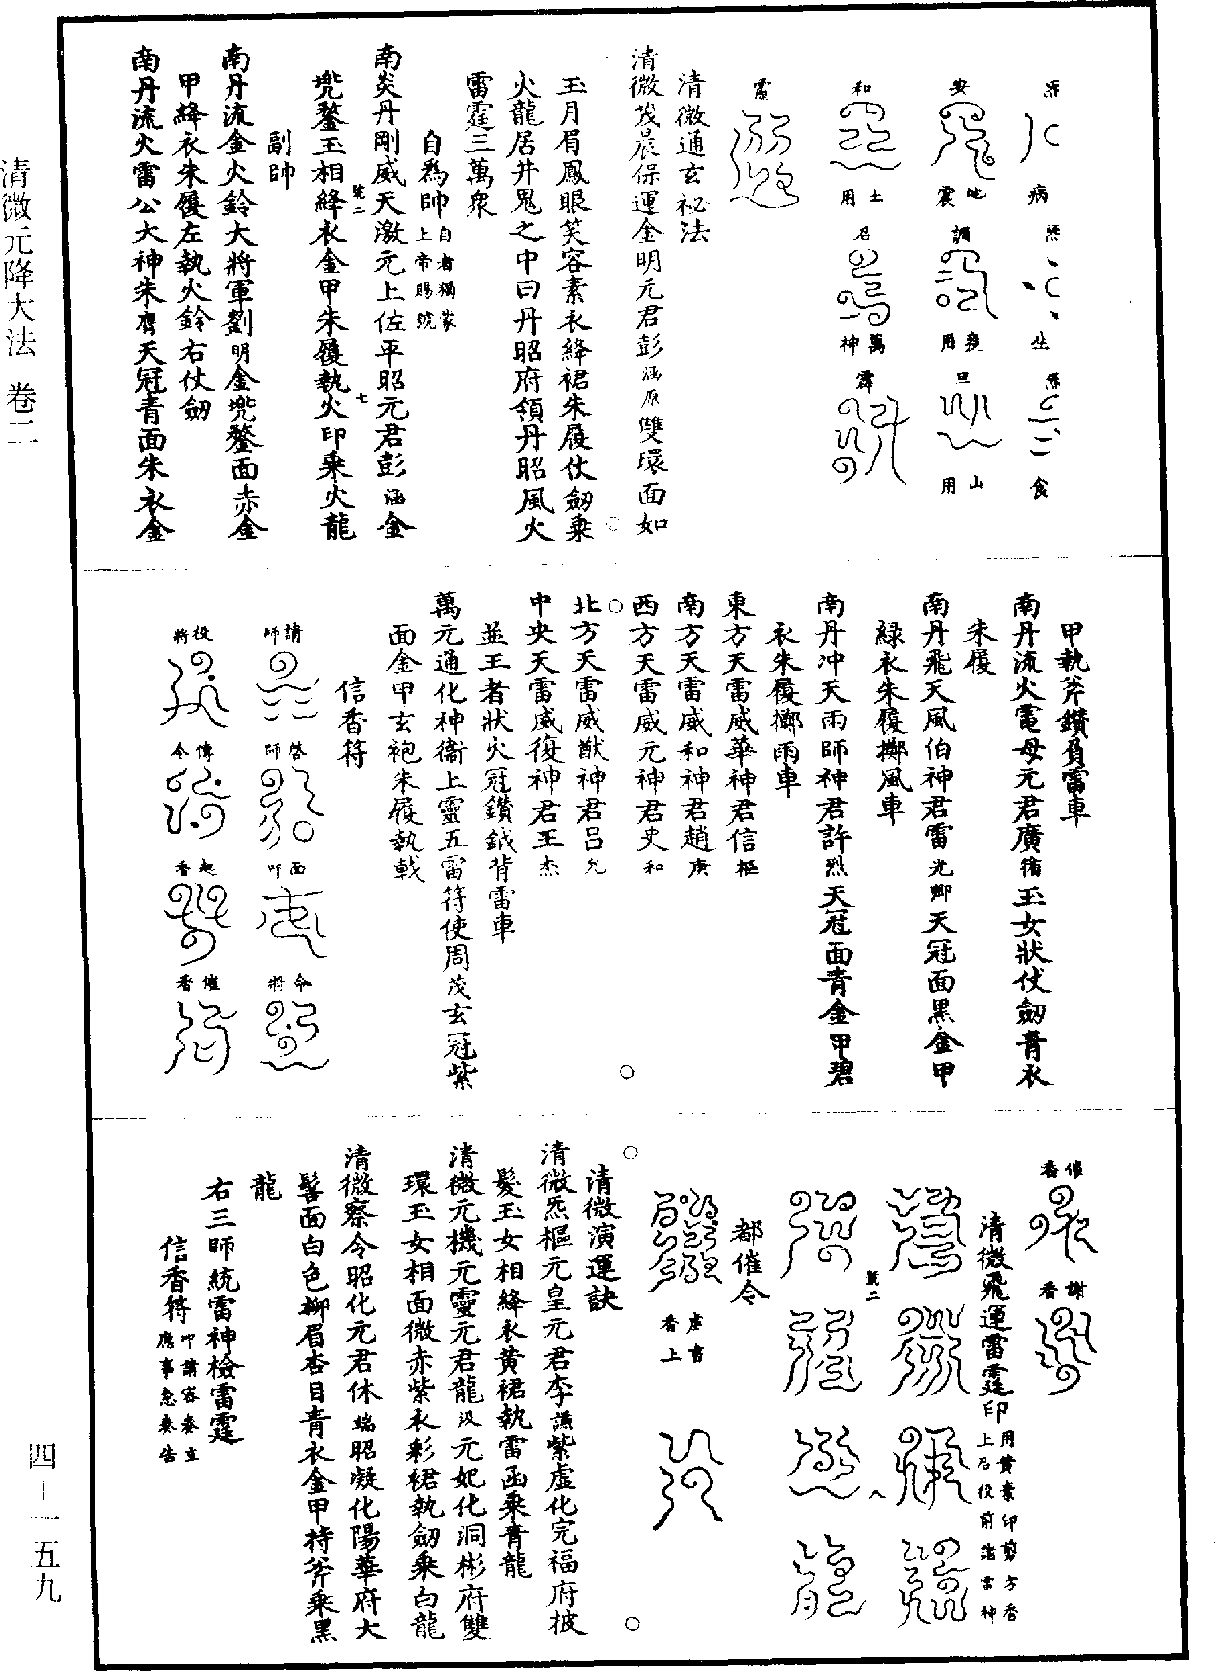 清微元降大法 卷二
四—一五九
病
生
食
安
地
震
調
用
旦
山
用
和
土
用
召
萬
神
霹
靂
清微通玄祕法
清微茂晨保運金明元君彭涵原雙環面如
玉月眉鳳眼笑容素衣絳裙朱履仗劒乘
火龍居井鬼之中曰丹昭府領丹昭風火
雷霆三萬衆
自為帥自者獨蒙上帝賜號
南炎丹剛威天激元上佐平昭元君彭涵金
兜鍪玉相絳衣金甲朱履執火印乘火龍
號二
七
副帥
南丹流金火鈴大將軍劉明金兜鍪面赤金
甲絳衣朱履左執火鈴右仗劒
南丹流火雷公大神朱霄天冠青面朱衣金
甲執斧鑽負雷車
南丹流火電母元君廣㣲玉女狀仗劒青衣
朱履
南丹飛天風伯神君雷光卿天冠面黑金甲
綠衣朱履擲風車
南丹冲天雨師神君許烈天冠面青金甲碧
衣朱履擲雨車
東方天雷威華神君信樞
南方天雷威和神君趙庚
西方天雷威元神君史和
北方天雷威猷神君呂允
中央天雷威復神君王杰
並王者狀火冠鑽鉞背雷車
萬元通化神衞上靈五雷符使周茂玄冠紫
面金甲玄袍朱履執戟
信香符
請師
啓師
面叩
令將
役將
傳令
起香
催香
催香
謝香
清微飛運雷霆印用黃素印剪方香上召役前諸雷神
號二
八
都催令
虛書香上
清微演運訣
清微炁樞元皇元君李謙紫虛化完福府披
髮玉女相絳衣黃裙執雷函乘青龍
清微元機元靈元君龍汲元妃化洞彬府雙
環玉女相面微赤紫衣彩裙執劒乘白龍
清微察令昭化元君休端昭凝化陽華府大
髻面白色柳眉杏目青衣金甲持斧乘黑
龍
右三師統雷神檢雷霆
信香符叩請容奏立應事急奏告